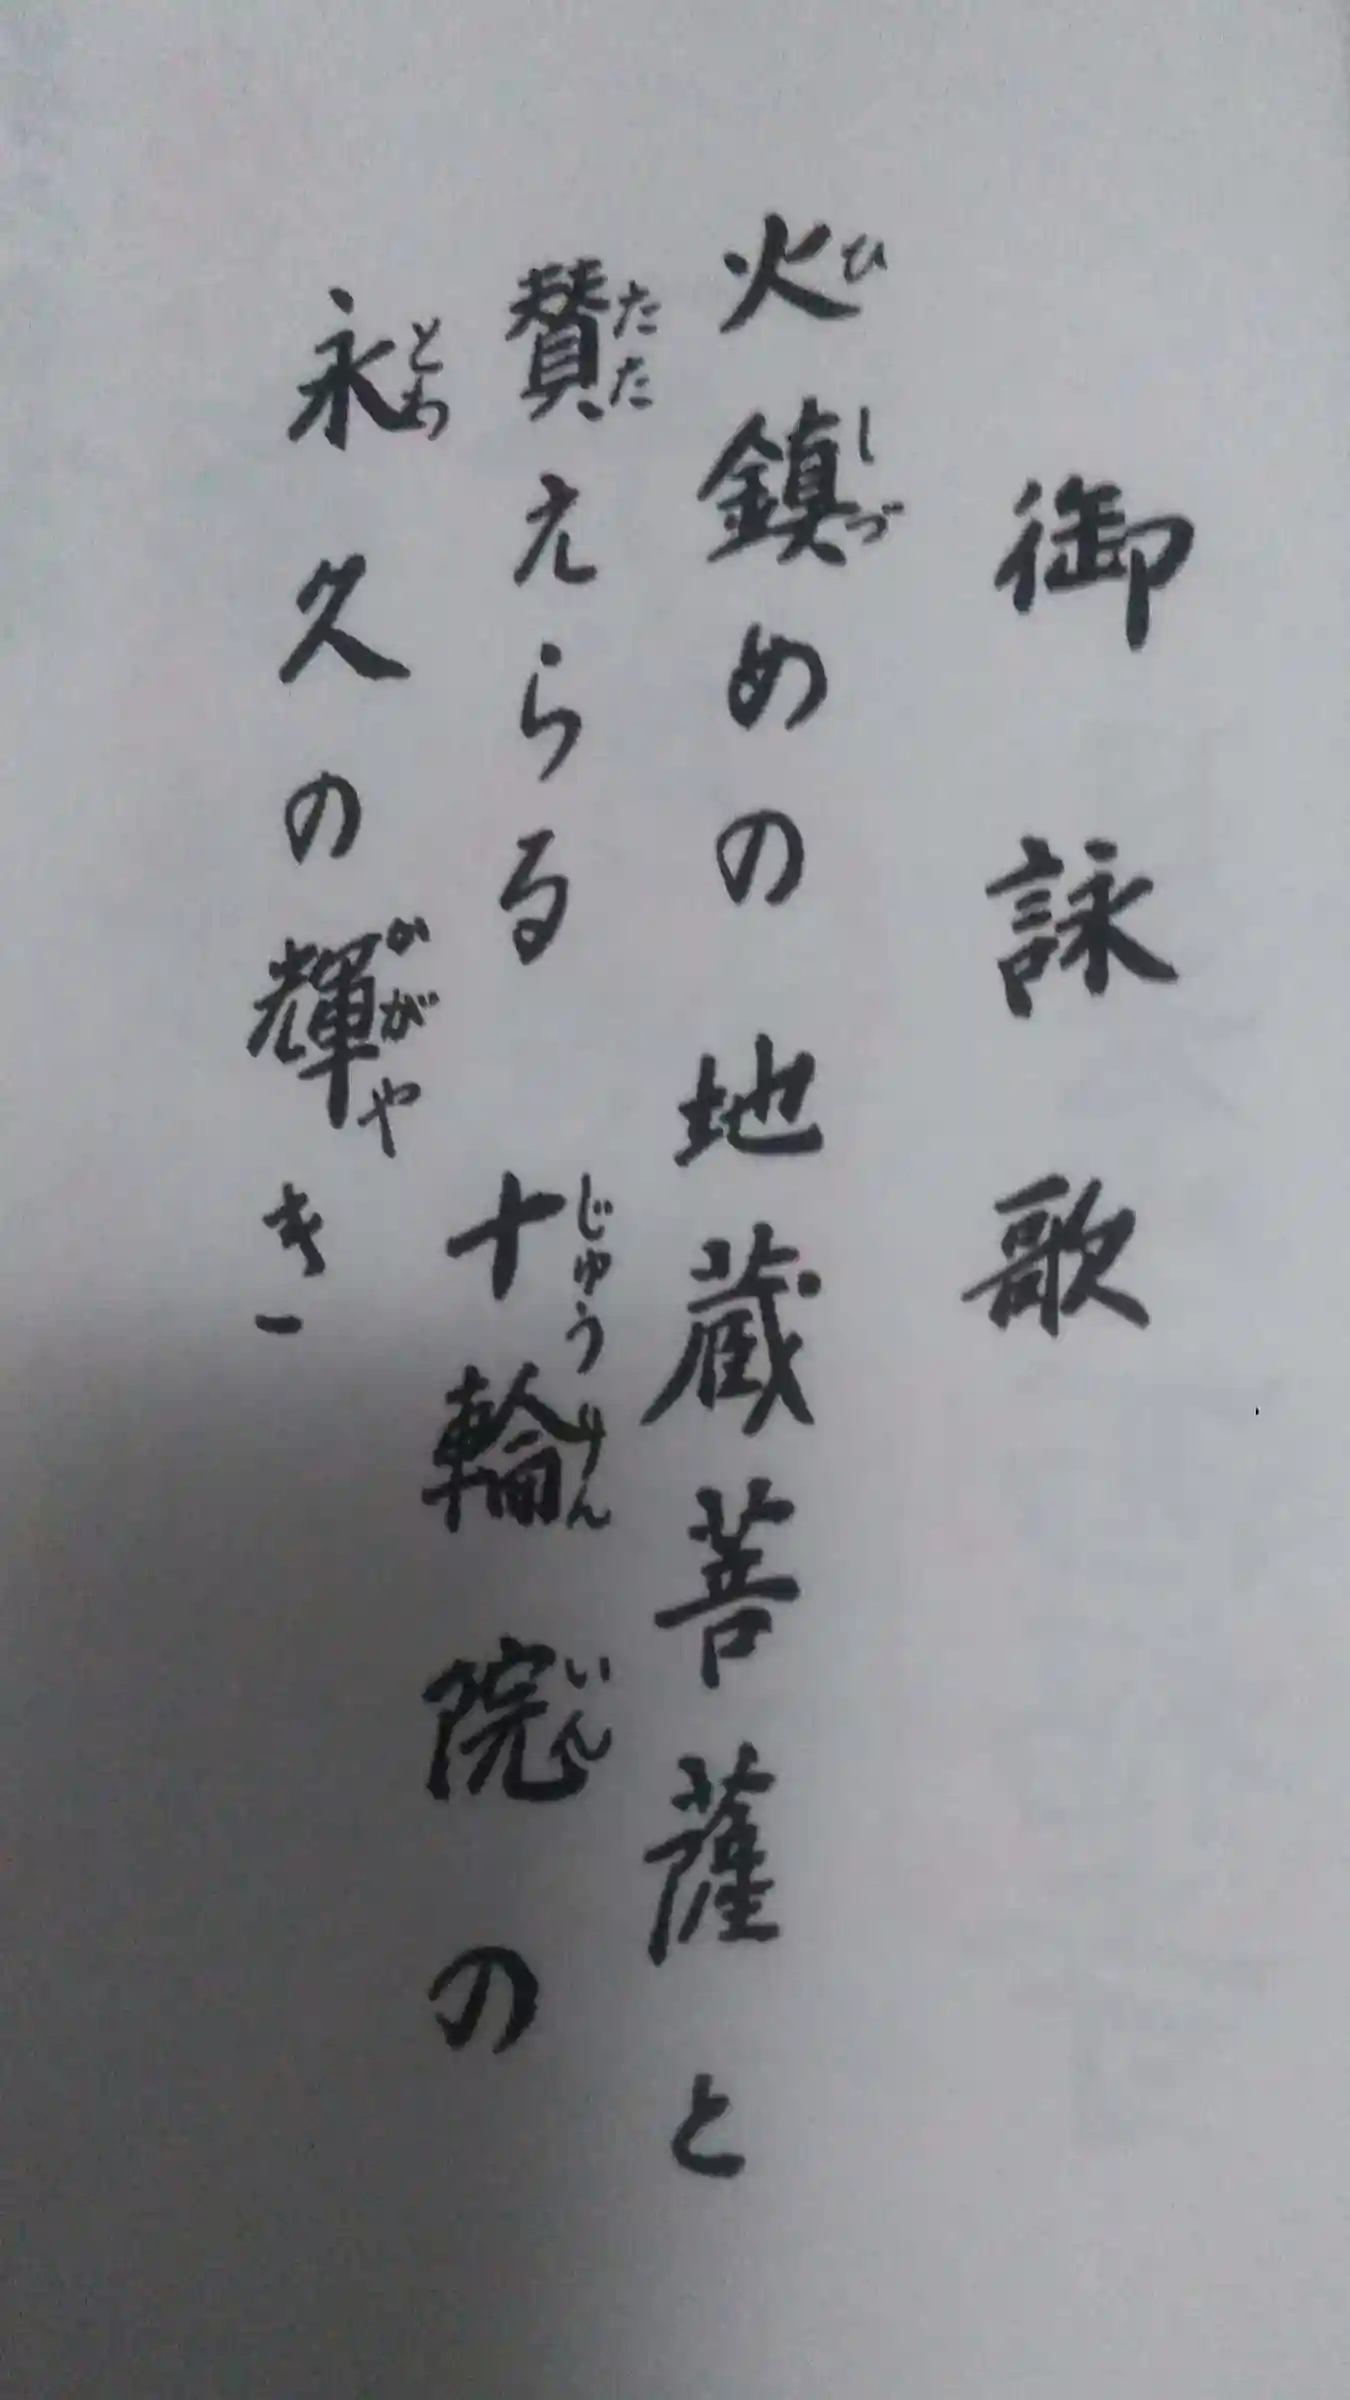 御詠歌
火鎮めの地蔵菩薩と
ひしづ
賛えらる十輪院の
たたじゅうりんいん
永久の輝き
とわかがや